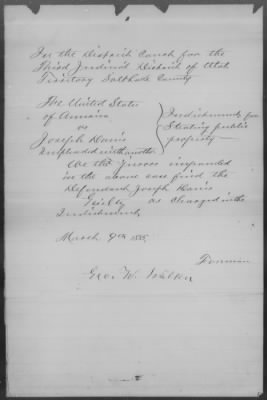 In the District Court for the
Third Judicial District of Utah
Territory Salt Lake County
The United States
of America
vs
Joseph Davis
Impleaded with another
Indictment for
Stealing public
property
We the Jurors impaneled
in the above case find the
Defendant Joseph Davis
Guilty as charged in the
Indictment
March 9th 
Foreman
Geo. W.